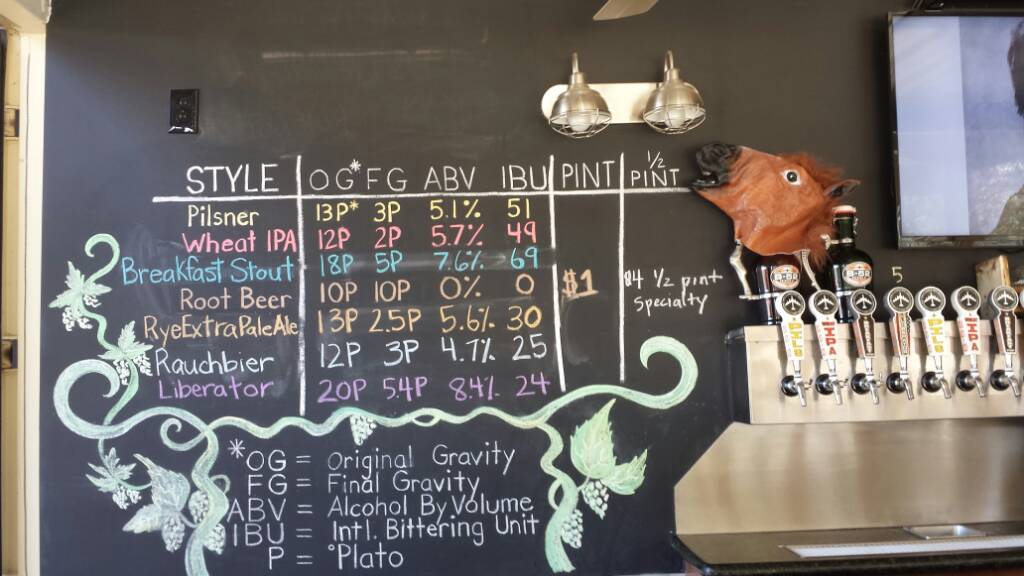 STYLE OG* FG ABV IBU PINT 1/2 PINT
Pilsner 13P* 3P 5.1% 51
Wheat IPA 12P 2P 5.7% 49
Breakfast Stout 18P 5P 7.6% 69
Root Beer 10P 10P 0% 0 $1
$4 1/2 pint
specialty
RyeExtraPaleAle 13P 2.5P 5.6% 30
Rauchbier 12P 3P 4.7% 25
Liberator 20P 5.4P 8.4% 24
*OG = Original Gravity
FG = Final Gravity
ABV = Alcohol By Volume
IBU = Intl. Bittering Unit
P = °Plato
5
B-52
B-52
PILS
IPA
PILS
IPA